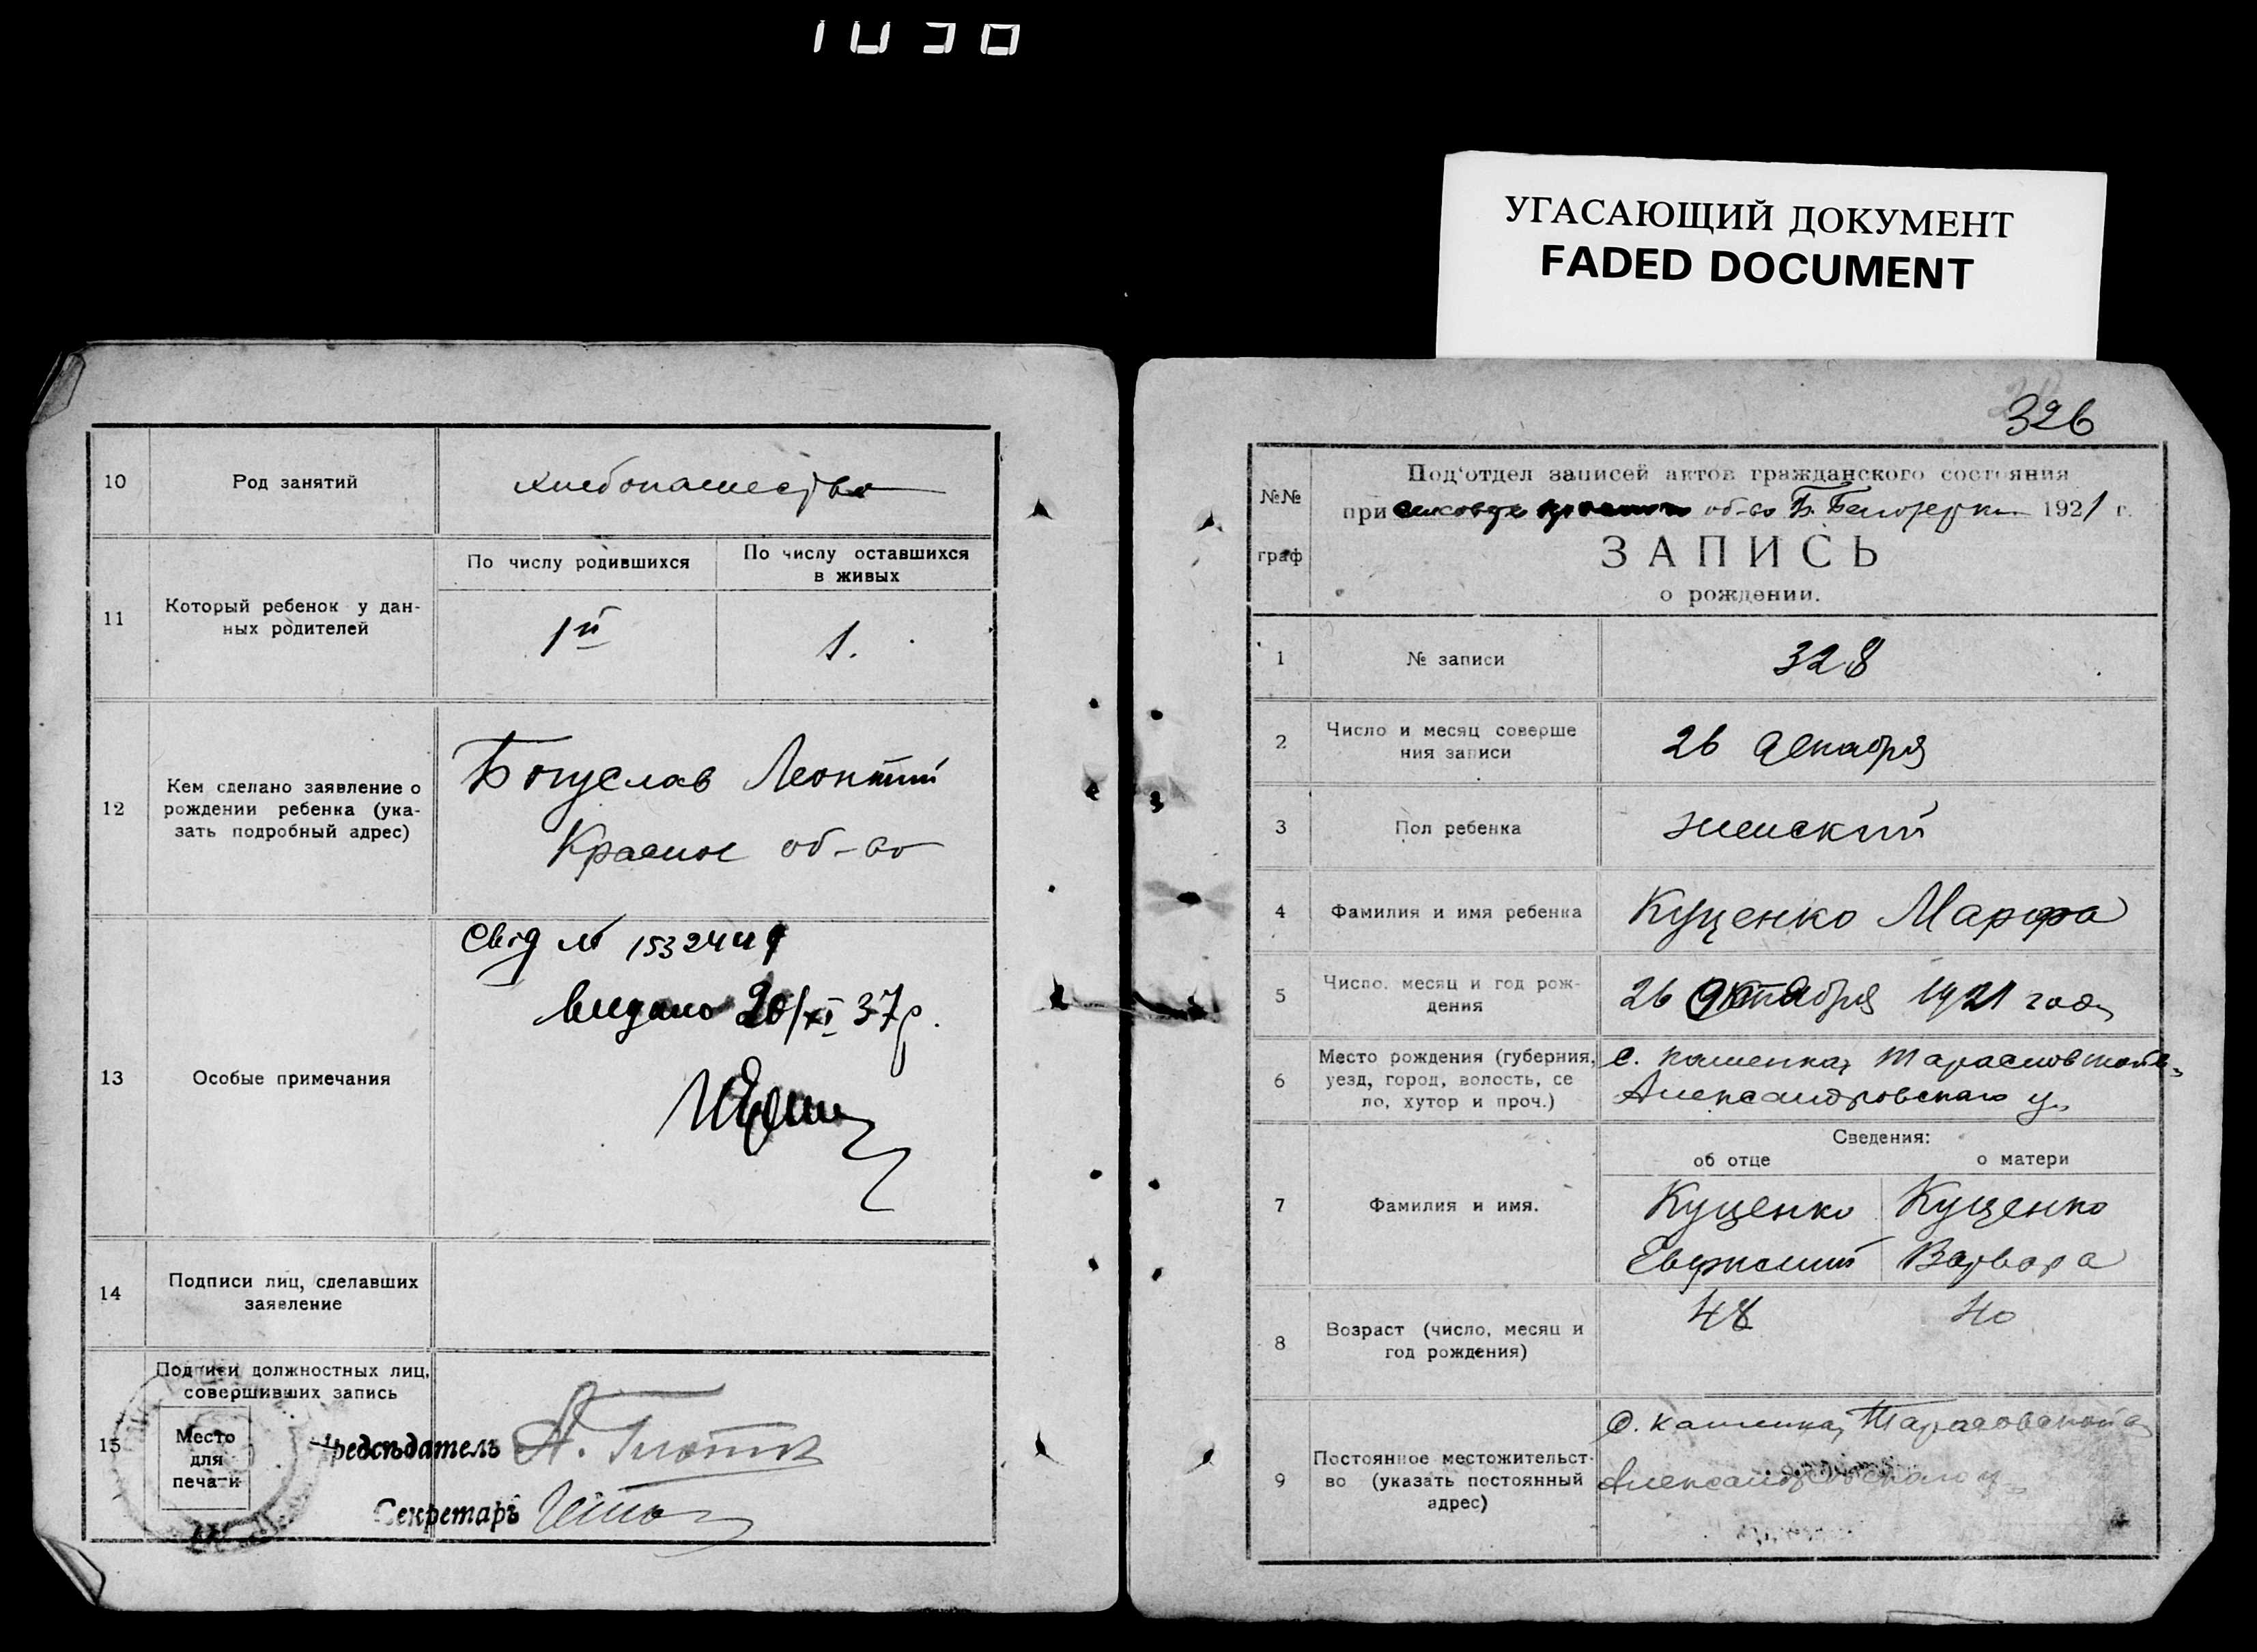 УГАСАЮЩИЙ ДОКУМЕНТ
FADED DOCUMENT
10 Род занятий хлебопашество
11 Который ребенок у дан-
ных родителей
По числу родившихся
По числу оставшихся
в живых
1й
1.
12 Кем сделано заявление о
рождении ребенка (ука-
зать подробный адрес)
Богуслав Леонтий
Красное об-во
13 Особые примечания
Свід №
видано 20/XI 37р.
14 Подписи лиц, сделавших
заявление
15 Подписи должностных лиц,
совершивших запись
Место
для
печати
Председатель А.
Секретарь
326
№№
граф
Под'отдел записей актов гражданского состояния
при об-во Б. 1921 г.
ЗАПИСЬ
о рождении.
1 № записи 328
2 Число и месяц соверше
ния записи
26 декабря
3 Пол ребенка женский
4 Фамилия и имя ребенка Куценко Марфа
5 Число, месяц и год рож-
дения
26 Октября 1921 года
6 Место рождения (губерния,
уезд, город, волость, се
ло, хутор и проч.)
с. Каменка,
Александровскаго у.
Сведения:
об отце
о матери
7 Фамилия и имя.
Куценко
Куценко
Варвара
8 Возраст (число, месяц и
год рождения)
48
40
9 Постоянное местожительст-
во (указать постоянный
адрес)
с. Каменка, Тарасовской в
Александровскаго у.